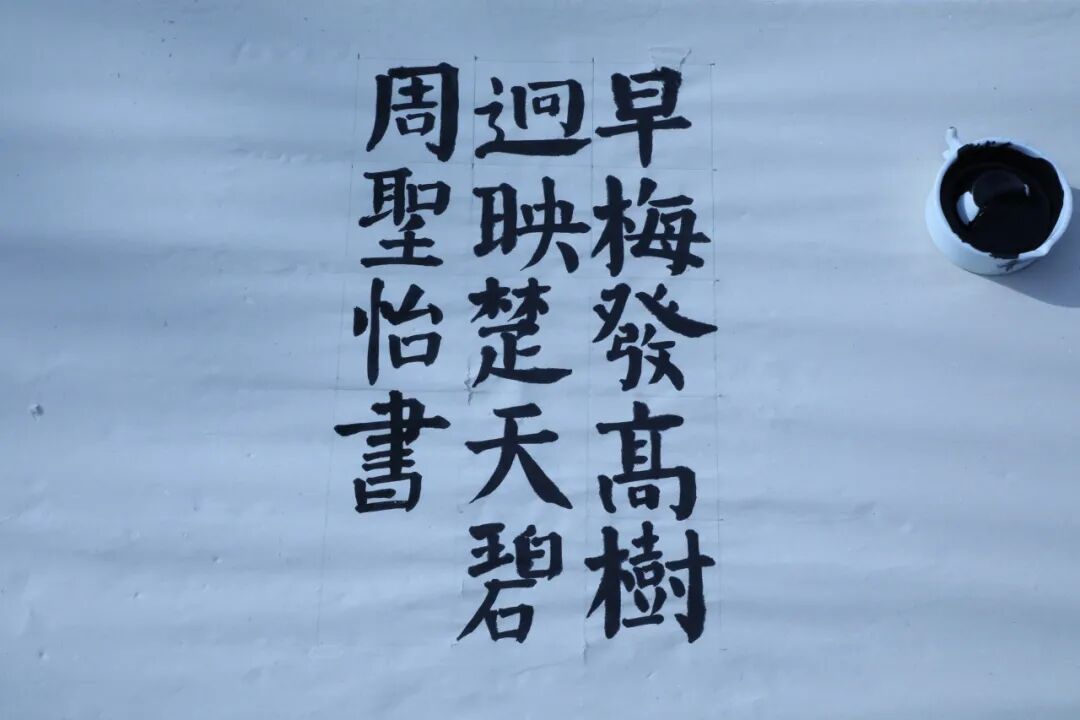 早梅發髙樹
迥映楚天碧
周聖怡書